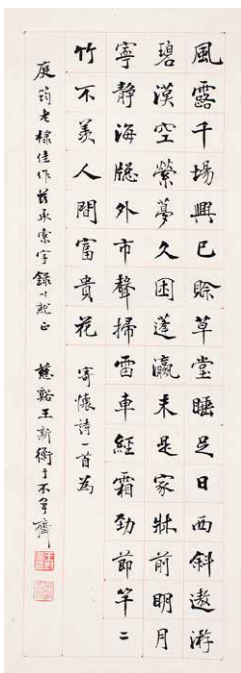 風露千場興已賒草堂睡足日西斜遨游
碧漢空縈夢久困蓬瀛未是家牀前明月
寧静海牕外市聲掃雷車經霜勁節竿二
竹不羨人間富貴花 寄懷詩一首為
筠老棣佳作茲承索字錄以就正 慈谿王新衡于不争齋